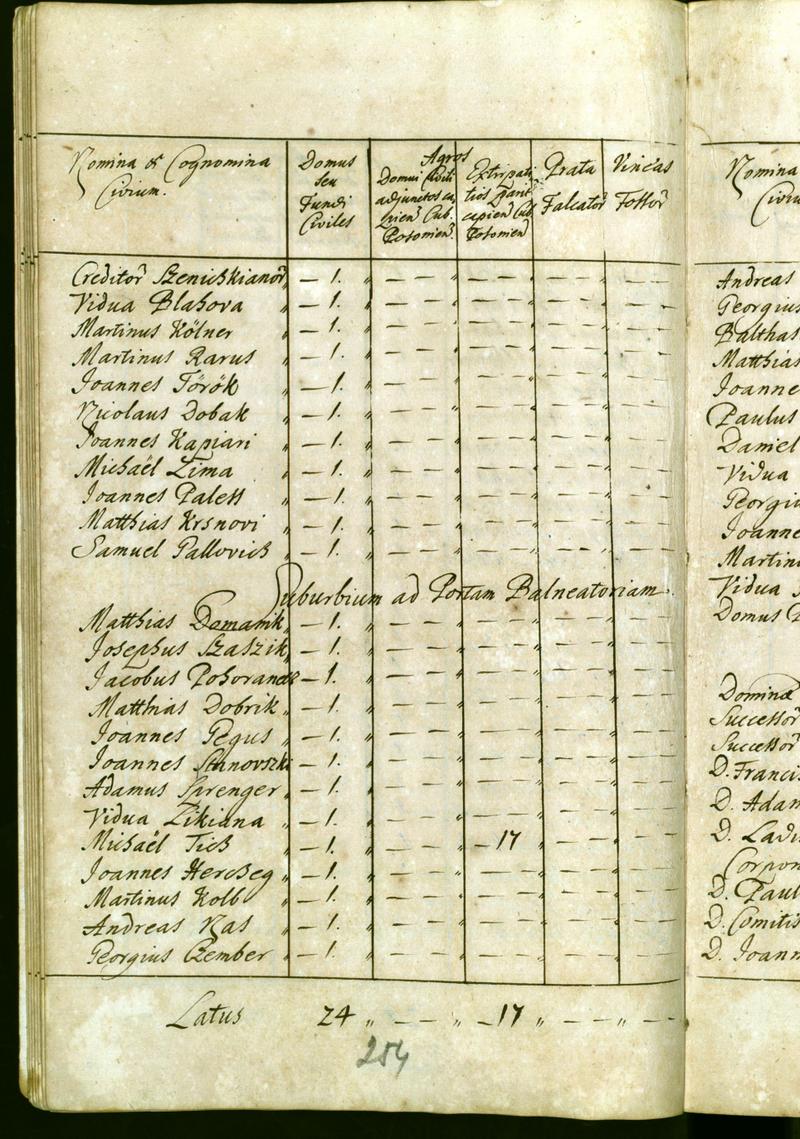 Nomina & Cognomina Civium.
Domus seu Fundi Civiles
Agros
Domui Civili adjunctos
Cub. Posonien.
Extirpatitios
capien Cub Posonien
Prata Falcator
Vineas Fossor
Creditor Szenickianor „ — 1. „ — — „ — — „ — — „ — —
Vidua Blahova „ — 1. „ — — „ — — „ — — „ — —
Martinus Kölner „ — 1. „ — — „ — — „ — — „ — —
Martinus Rarus „ — 1. „ — — „ — — „ — — „ — —
Joannes Török „ — 1. „ — — „ — — „ — — „ — —
Nicolaus Dobak „ — 1. „ — — „ — — „ — — „ — —
Joannes Kapiari „ — 1. „ — — „ — — „ — — „ — —
Michaël Zima „ — 1. „ — — „ — — „ — — „ — —
Joannes Paless „ — 1. „ — — „ — — „ — — „ — —
Matthias Krsnovi „ — 1. „ — — „ — — „ — — „ — —
Samuel Pallovich „ — 1. „ — — „ — — „ — — „ — —
Suburbium ad Portam Balneatoriam.
Matthias Domanik „ — 1. „ — — „ — — „ — — „ — —
Josephus Szaszik „ — 1. „ — — „ — — „ — — „ — —
Jacobus — 1. „ — — „ — — „ — — „ — —
Matthias Dobrik „ — 1. „ — — „ — — „ — — „ — —
Joannes Gegus „ — 1. „ — — „ — — „ — — „ — —
Joannes — 1. „ — — „ — — „ — — „ — —
Adamus Sprenger „ — 1. „ — — „ — — „ — — „ — —
Vidua Zikiana „ — 1. „ — — „ — — „ — — „ — —
Michaël Tich „ — 1. „ — — „ — 17 „ — — „ — —
Joannes Herczeg „ — 1. „ — — „ — — „ — — „ — —
Martinus Kolb „ — 1. „ — — „ — — „ — — „ — —
Andreas Nas „ — 1. „ — — „ — — „ — — „ — —
Georgius Czember „ — 1. „ — — „ — — „ — — „ — —
Latus 24 „ — — „ — 17 „ — — „ — —
254
Nomina
Andreas
Georgius
Balthas
Matthias
Joanne
Paulus
Daniel
Vidua
Georgiu
Joanne
Martinu
Vidua
Domus
Dominæ
Successor
Successor
D. Franci
D. Adam
D. Ladi
Corpon
D. Paul
D. Comitis
D. Joann